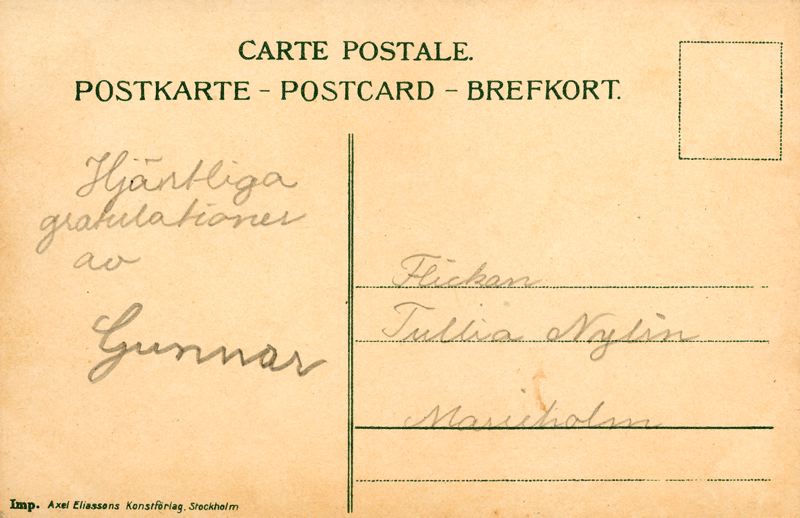 CARTE POSTALE.
POSTKARTE - POSTCARD - BREFKORT.
Hjärtliga
gratulationer
av
Gunnar
Flickan
Tullia Nylin
Marieholm
Imp. Axel Eliassons Konstförlag, Stockholm